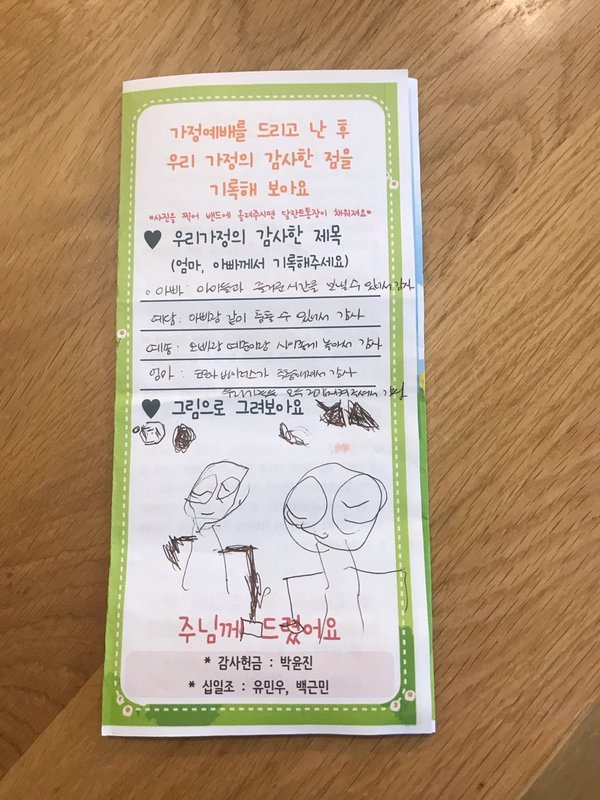 가정예배를 드리고 난 후
우리 가정의 감사한 점을
기록해 보아요
*사진을 찍어 밴드에 올려주시면 달란트통장이 채워져요*
♥ 우리가정의 감사한 제목
(엄마, 아빠께서 기록해주세요)
아빠 : 아이들과 즐거운 시간을 보낼수 있어서 감사
예당 : 아빠랑 같이 통할 수 있어서 감사
예송 : 오빠랑 사이좋게 놀아서 감사
엄마 : 코로나 바이러스가 감사
♥ 그림으로 그려보아요
주님께 드렸어요
* 감사헌금 : 박윤진
* 십일조 : 유민우, 백근민